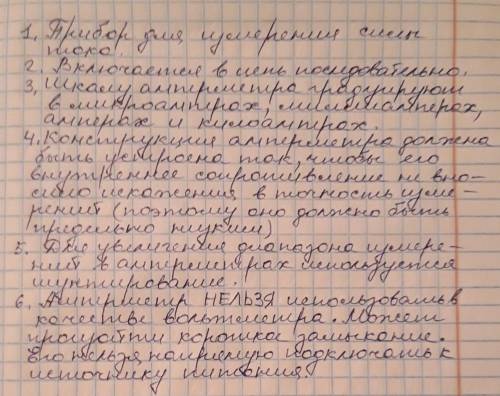 1. Прибор для измерения силы
тока.
2. Включается в цепь последовательно.
3, Шкалу амперметра градуируют
в микроампрах, миллиамперах,
амперах и килоампрах.
4. Конструкция амперметра должна
быть устроена так, чтобы его
внутреннее сопротивление не вно-
сило искажения в точность изме-
рений (поэтому оно должно быть
предельно низким)
5. Для увеличения диапазона измере-
ний в амперметрах используется
шунтирование.
6. Амперметр НЕЛЬЗЯ использовать в
качестве вольтметра. Может
произойти коротка замыкание.
Его нельзя напрямую подключать к
источнику питания.